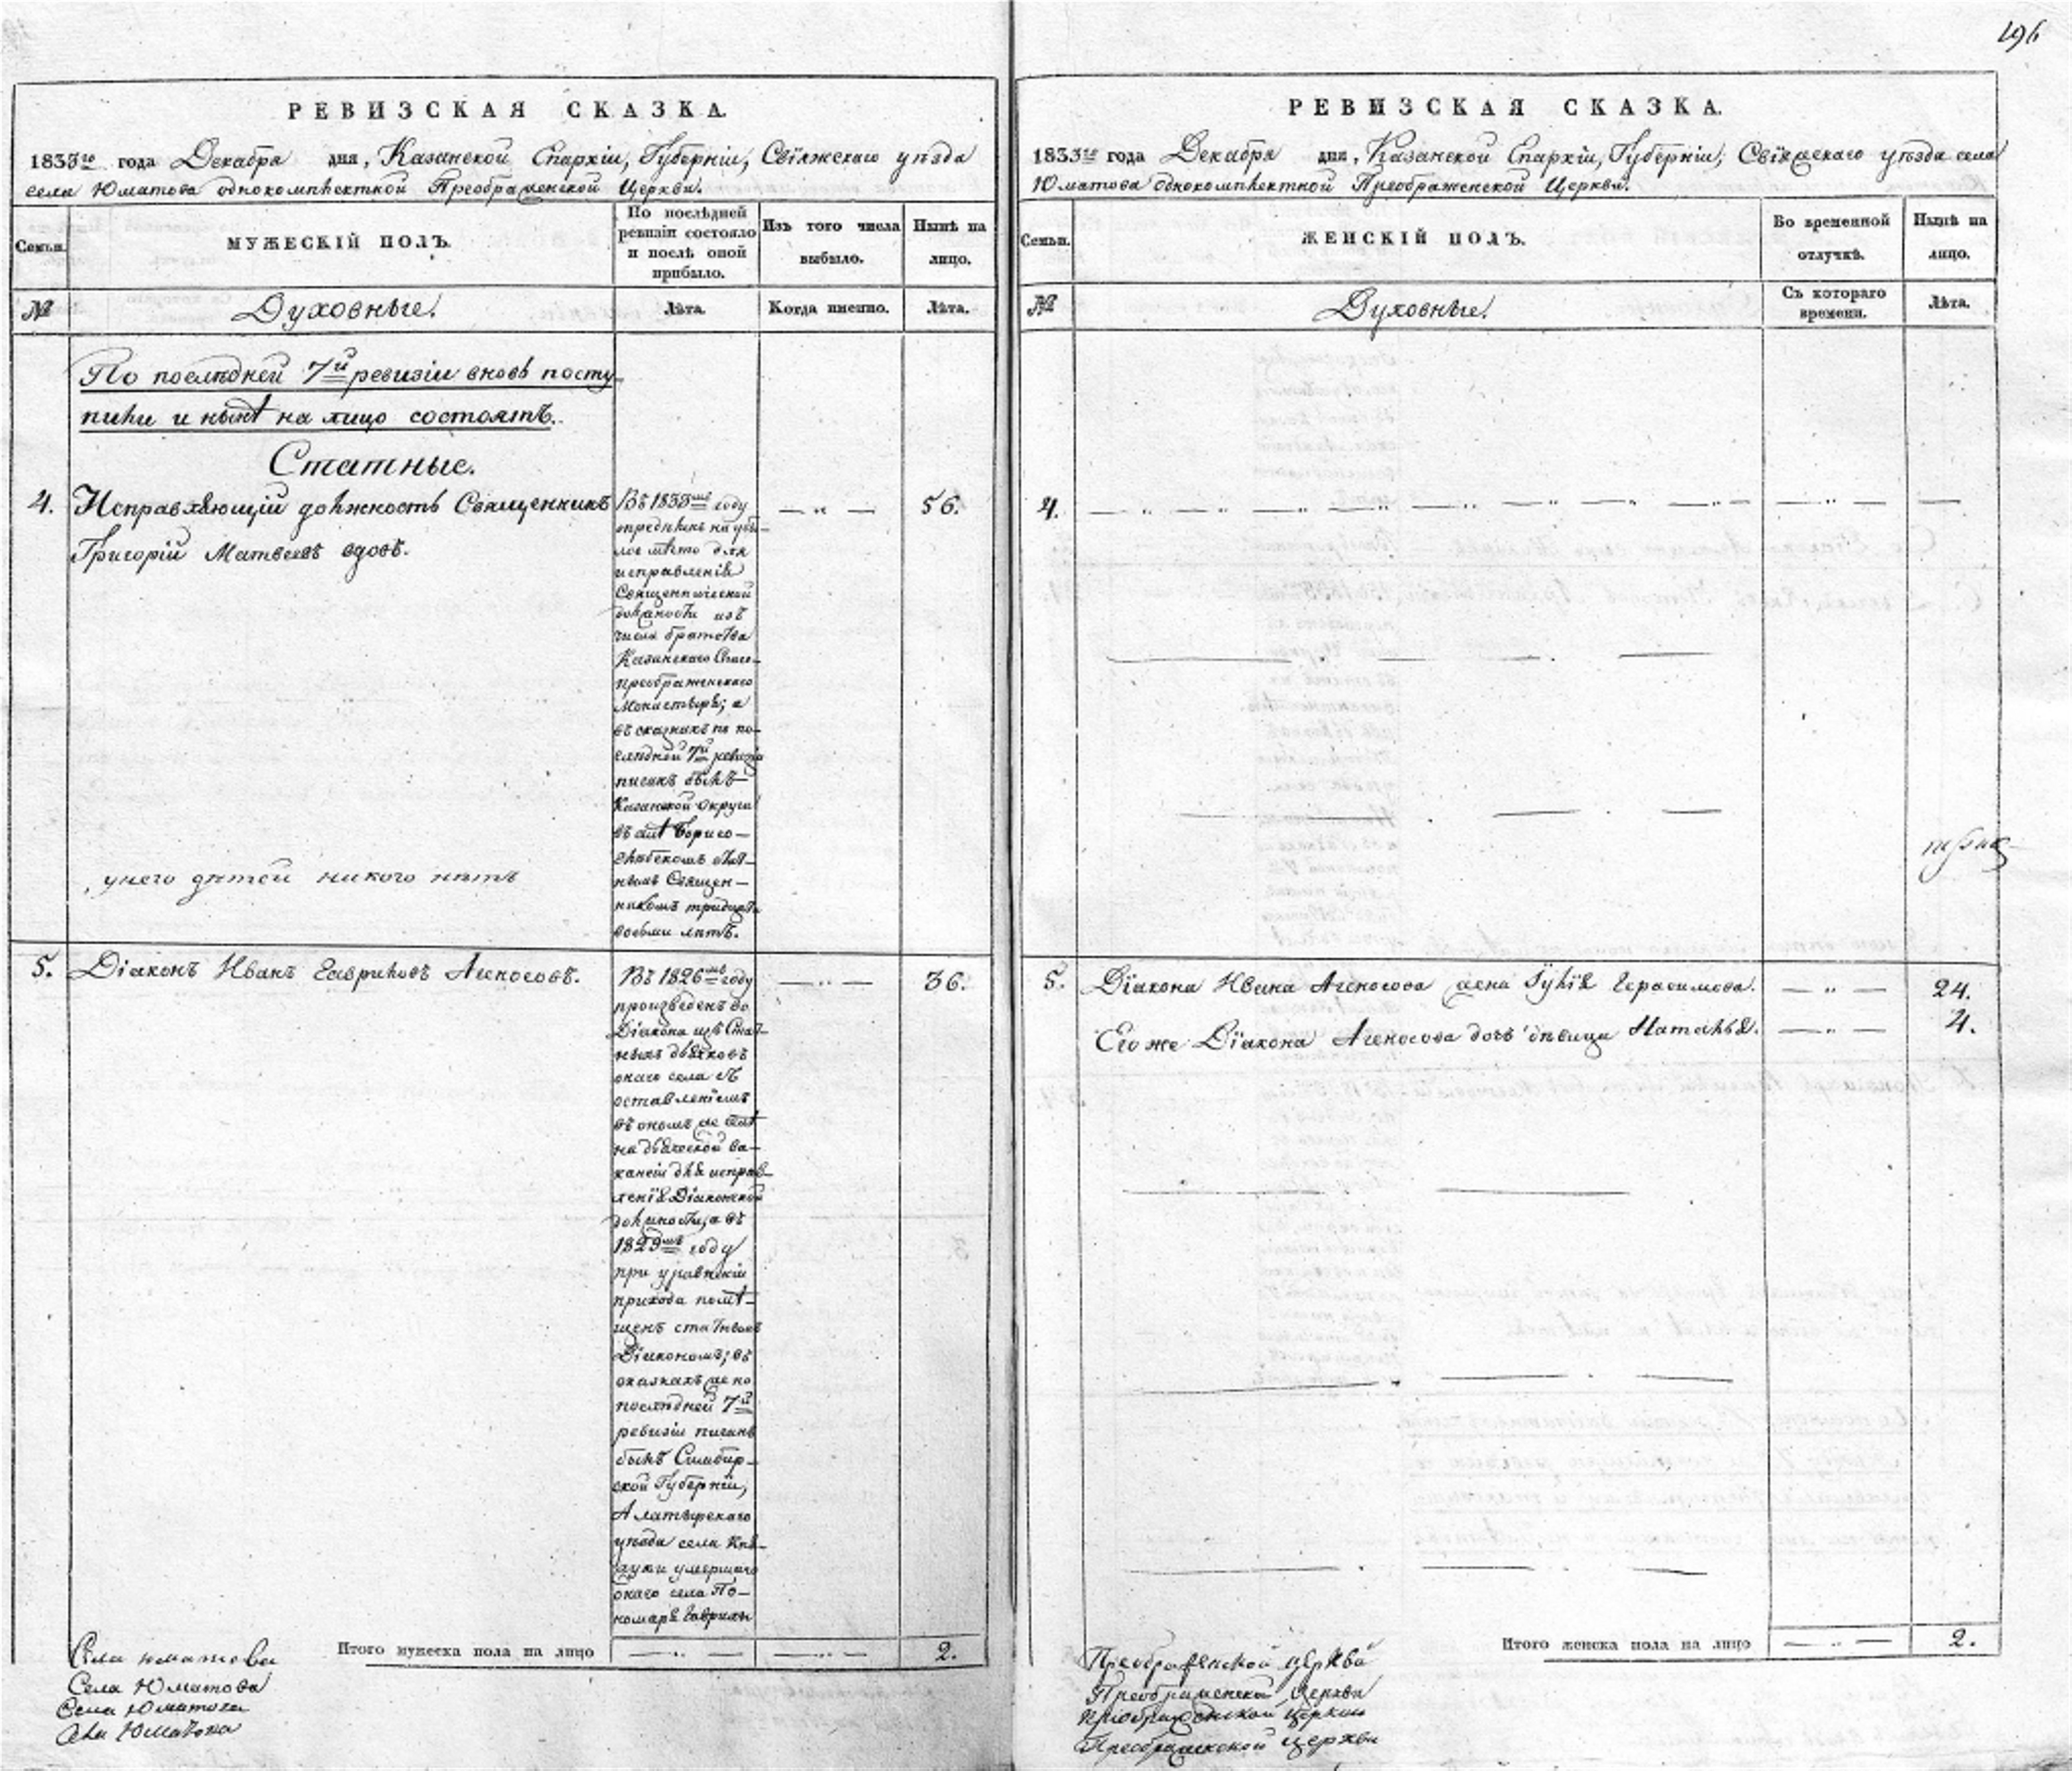 196
РЕВИЗСКАЯ СКАЗКА.
1833го года Декабря дня, Казанской Епархіи, Губерніи, Свіяжскаго уѣзда
села Юматова однокомплектной Преображенской Церкви.
Семьи.
МУЖЕСКІЙ ПОЛЪ.
По послѣдней
ревизіи состояло
и послѣ оной
прибыло.
Изъ того числа
выбыло.
Нынѣ на
лицо.
№
Духовные.
Лѣта.
Когда именно.
Лѣта.
По последней 7й ревизіи вновь посту
пили и нынѣ на лицо состоятъ.
Статные.
4. Исправляющій должность Священникъ
Григорій Матвеевъ вдовъ.
Въ 1833мъ году
опредѣленъ на убы-
лое мѣсто для
исправленія
Священнической
должности изъ
числа братства
Казанскаго Спасо-
преображенскаго
Монастыря; а
въ сказкахъ по по-
слѣдней 7й ревизіи
писанъ былъ
Казанской округи
въ селѣ Борисо-
глѣбскомъ
Священ-
никомъ тридцати
восьми лѣтъ.
— „ —
56.
у него дѣтей никого нѣтъ
5. Діаконъ Иванъ Гавриловъ Агеносовъ.
Въ 1826мъ году
произведенъ во
Діакона изъ Стат-
ныхъ дьячковъ
онаго села съ
оставленіемъ
въ ономъ же селѣ
на дьяческой ва-
кансіи для исправ-
ленія Діаконской
должности, а въ
1829мъ году
при уравненіи
прихода помѣ-
щенъ статнымъ
Діакономъ; въ
сказкахъ же по
послѣдней 7й
ревизіи писанъ
былъ Симбир-
ской Губерніи,
Алатырскаго
уѣзда села
умершаго
онаго села По-
номаря Гаврилы
— „ —
36.
Итого мужеска пола на лицо
— „ —
— „ —
2.
Села Юматова
Села Юматова
Села Юматова
Села Юматова
РЕВИЗСКАЯ СКАЗКА.
1833го года Декабря дня, Казанской Епархіи, Губерніи, Свіяжскаго уѣзда села
Юматова однокомплектной Преображенской Церкви.
Семьи.
ЖЕНСКІЙ ПОЛЪ.
Во временной
отлучкѣ.
Нынѣ на
лицо.
№
Духовные.
Съ котораго
времени.
Лѣта.
4. — „ — „ — „ — „ —
5. Діакона Ивана Агеносова жена Іулія Герасимова. — „ — 24.
Его же Діакона Агеносова дочь дѣвица Наталья. — „ — 4.
Итого женска пола на лицо — „ — 2.
Преображенской церкви
Преображенской Церкви
Преображенской Церкви
Преображенской церкви